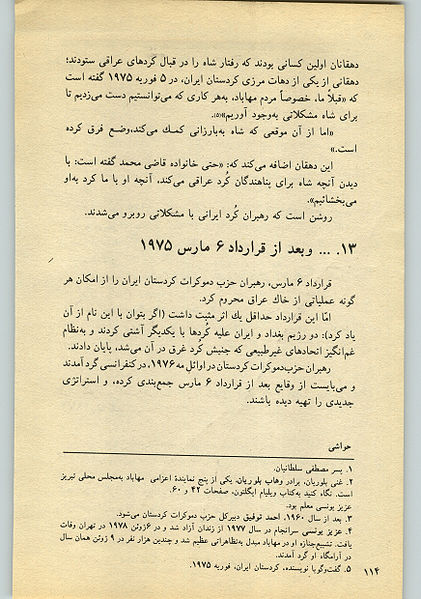 دهقانان اولین کسانی بودند که رفتار شاه را در قبال کردهای عراقی ستودند؛
دهقانی از یکی از دهات مرزی کردستان ایران، در ۵ فوریه ۱۹۷۵ گفته است
که «قبلاً ما، خصوصاً مردم مهاباد، به‌هر کاری که می‌توانستیم دست می‌زدیم تا
برای شاه مشکلاتی به‌وجود آوریم»(۵).
«اما از آن موقعی که شاه به‌بارزانی کمك می‌کند،وضع فرق کرده
است.»
این دهقان اضافه می‌کند که: «حتی خانواده قاضی محمد گفته است: با
دیدن آنچه شاه برای پناهندگان کُرد عراقی می‌کند، آنچه او با ما کرد به‌او
می‌بخشائیم».
روشن است که رهبران کُرد ایرانی با مشکلاتی روبرو می‌شدند.
۱۳. ... وبعد از قرارداد ۶ مارس ۱۹۷۵
قرارداد ۶ مارس، رهبران حزب دموکرات کردستان ایران را از امکان هر
گونه عملیاتی از خاك عراق محروم کرد.
امّا این قرارداد حداقل یك اثر مثبت داشت (اگر بتوان با این نام از آن
یاد کرد): دو رژیم بغداد و ایران علیه کُردها با یکدیگر آشتی کردند و به‌نظام
غم‌انگیز اتحادهای غیرطبیعی که جنبش کُرد غرق در آن می‌شد، پایان دادند.
رهبران حزب‌دموکرات کردستان در اوائل مه ۱۹۷۶، در کنفرانسی گرد آمدند
و می‌بایست از وقایع بعد از قرارداد ۶ مارس جمع‌بندی کرده، و استراتژی
جدیدی را تهیه دیده باشند.
حواشی
۱. پسر مصطفی سلطانیان.
۲. غنی بلوریان، برادر وهاب بلوریان، یکی از پنج نمایندهٔ اعزامی مهاباد به‌مجلس محلی تبریز
است. نگاه کنید به‌کتاب ویلیام ایگلتون، صفحات ۴۲ و ۶۰.
عزیز یونسی معلم بود.
۳. بعد از سال ۱۹۶۰، احمد توفیق دبیرکل حزب دموکرات کردستان می‌شود.
۴. عزیز یونسی سرانجام در سال ۱۹۷۷ از زندان آزاد شد و در ۶ژوئن ۱۹۷۸ در تهران وفات
یافت. تشییع‌جنازه او در مهاباد مبدل به‌تظاهراتی عظیم شد و چندین هزار نفر در ۹ ژوئن همان سال
در آرامگاه او گرد آمدند.
۵. گفت‌وگوبا نویسنده، کردستان ایران، فوریه ۱۹۷۵.
۱۱۴